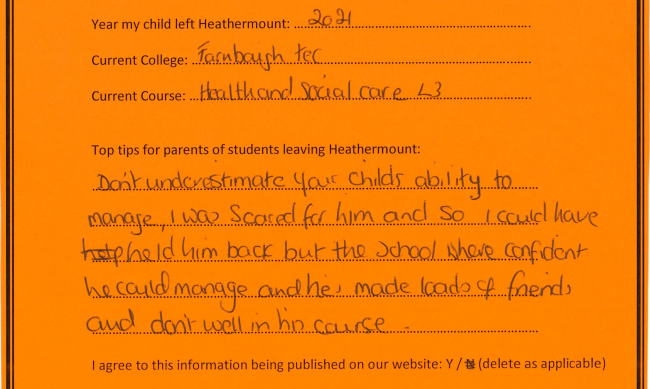 Year my child left Heathermount: 2021
Current College: Farnbough tec
Current Course: Health and Social care L3
Top tips for parents of students leaving Heathermount:
Don't underestimate your childs ability to
manage, I was Scared for him and so I could have
held him back but the school where confident
he could manage and he's made loads of friends
and don't well in his course.
I agree to this information being published on our website: Y / N (delete as applicable)